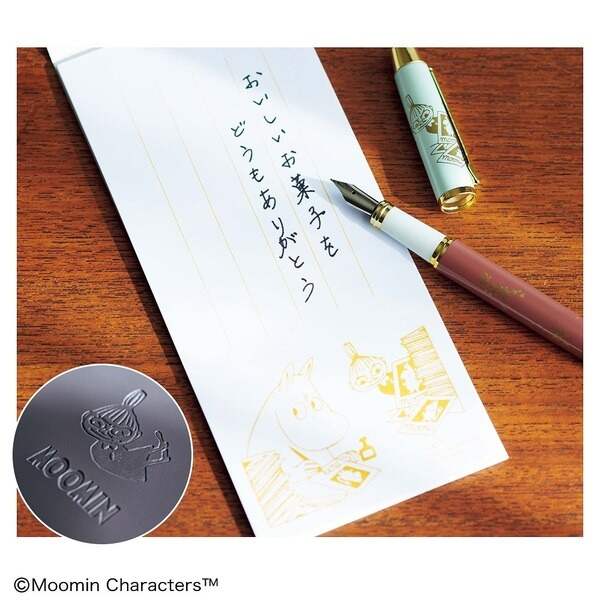 おいしいお菓子を
どうもありがとう
MOOMIN
©Moomin Characters™